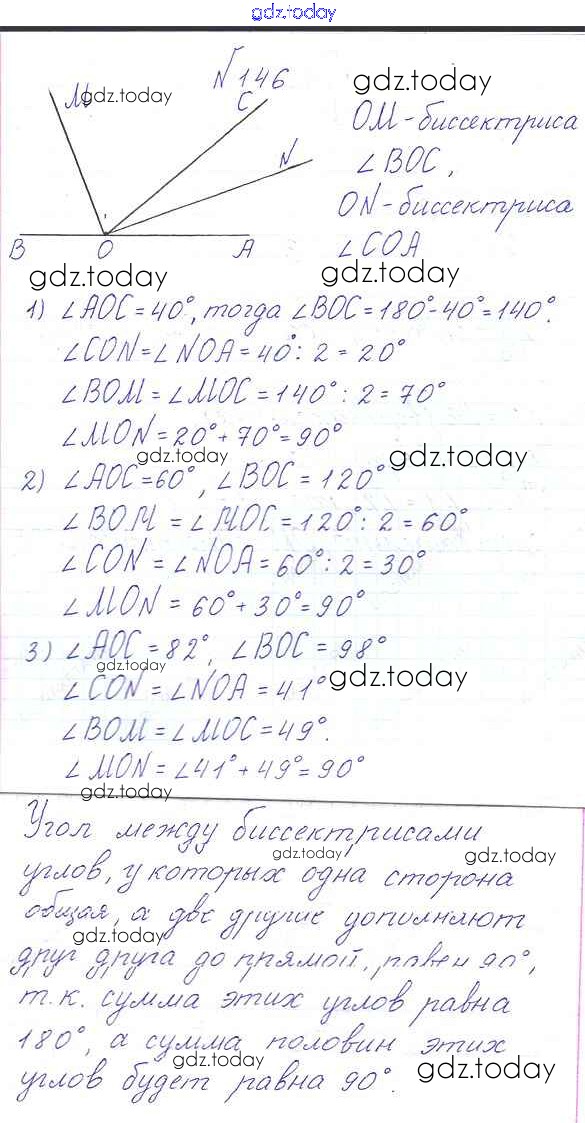 gdz.today
№146
M
gdz.today
C
N
B
O
A
gdz.today
OM-биссектриса
∠BOC,
ON-биссектриса
∠COA
gdz.today
gdz.today
1) ∠AOC=40°, тогда ∠BOC=180°-40°=140°.
∠CON=∠NOA=40°:2=20°
∠BOM=∠MOC=140°:2=70°
∠MON=20°+70°=90°
gdz.today
gdz.today
2) ∠AOC=60°, ∠BOC=120°
∠BOM=∠MOC=120°:2=60°
∠CON=∠NOA=60°:2=30°
∠MON=60°+30°=90°
3) ∠AOC=82°, ∠BOC=98°
gdz.today
∠CON=∠NOA=41°
gdz.today
∠BOM=∠MOC=49°.
∠MON=∠41°+49°=90°
gdz.today
Угол между биссектрисами
gdz.today
gdz.today
углов, у которых одна сторона
общая, а две другие дополняют
gdz.today
друг друга до прямой, равен 90°,
т.к. сумма этих углов равна
180°, а сумма половин этих
gdz.today
gdz.today
углов будет равна 90°.